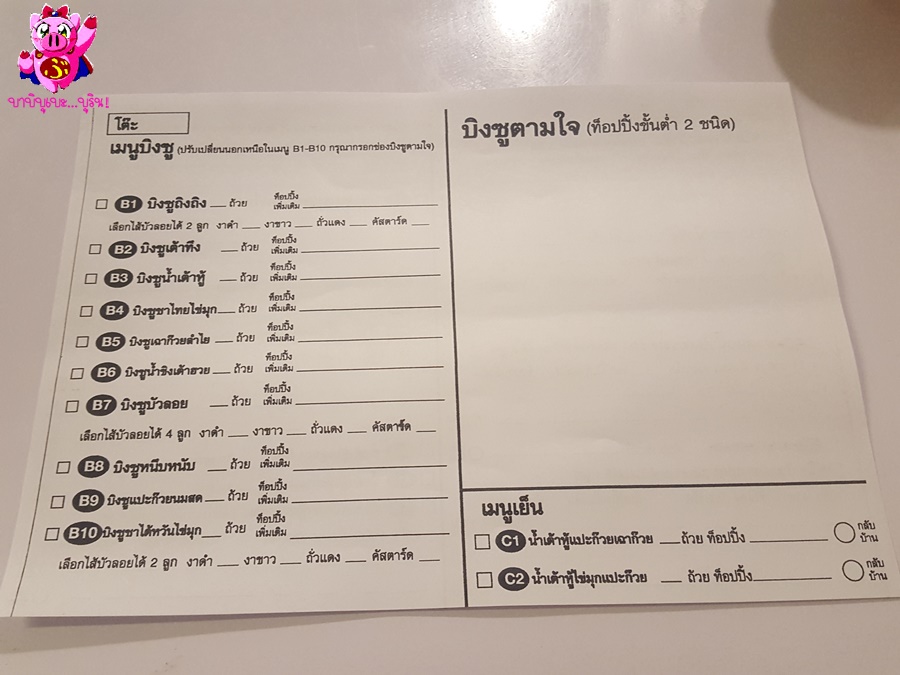 บาบิบุเบะ...บุริน!
โต๊ะ
เมนูบิงซู (ปรับเปลี่ยนนอกเหนือในเมนู B1-B10 กรุณากรอกช่องบิงซูตามใจ)
B1 บิงซูถิงถิง ___ ถ้วย ท็อปปิ้งเพิ่มเติม ___
เลือกไส้บัวลอยได้ 2 ลูก งาดำ ___ งาขาว ___ ถั่วแดง ___ คัสตาร์ด ___
B2 บิงซูเต้าทึง ___ ถ้วย ท็อปปิ้งเพิ่มเติม ___
B3 บิงซูน้ำเต้าหู้ ___ ถ้วย ท็อปปิ้งเพิ่มเติม ___
B4 บิงซูชาไทยไข่มุก ___ ถ้วย ท็อปปิ้งเพิ่มเติม ___
B5 บิงซูเฉาก๊วยลำไย ___ ถ้วย ท็อปปิ้งเพิ่มเติม ___
B6 บิงซูน้ำขิงเต้าฮวย ___ ถ้วย ท็อปปิ้งเพิ่มเติม ___
B7 บิงซูบัวลอย ___ ถ้วย ท็อปปิ้งเพิ่มเติม ___
เลือกไส้บัวลอยได้ 4 ลูก งาดำ ___ งาขาว ___ ถั่วแดง ___ คัสตาร์ด ___
B8 บิงซูหนึบหนับ ___ ถ้วย ท็อปปิ้งเพิ่มเติม ___
B9 บิงซูแปะก๊วยนมสด ___ ถ้วย ท็อปปิ้งเพิ่มเติม ___
B10 บิงซูชาไต้หวันไข่มุก ___ ถ้วย ท็อปปิ้งเพิ่มเติม ___
เลือกไส้บัวลอยได้ 2 ลูก งาดำ ___ งาขาว ___ ถั่วแดง ___ คัสตาร์ด ___
บิงซูตามใจ (ท็อปปิ้งขั้นต่ำ 2 ชนิด)
เมนูเย็น
C1 น้ำเต้าหู้แปะก๊วยเฉาก๊วย ___ ถ้วย ท็อปปิ้ง ___ กลับบ้าน
C2 น้ำเต้าหู้ไข่มุกแปะก๊วย ___ ถ้วย ท็อปปิ้ง ___ กลับบ้าน